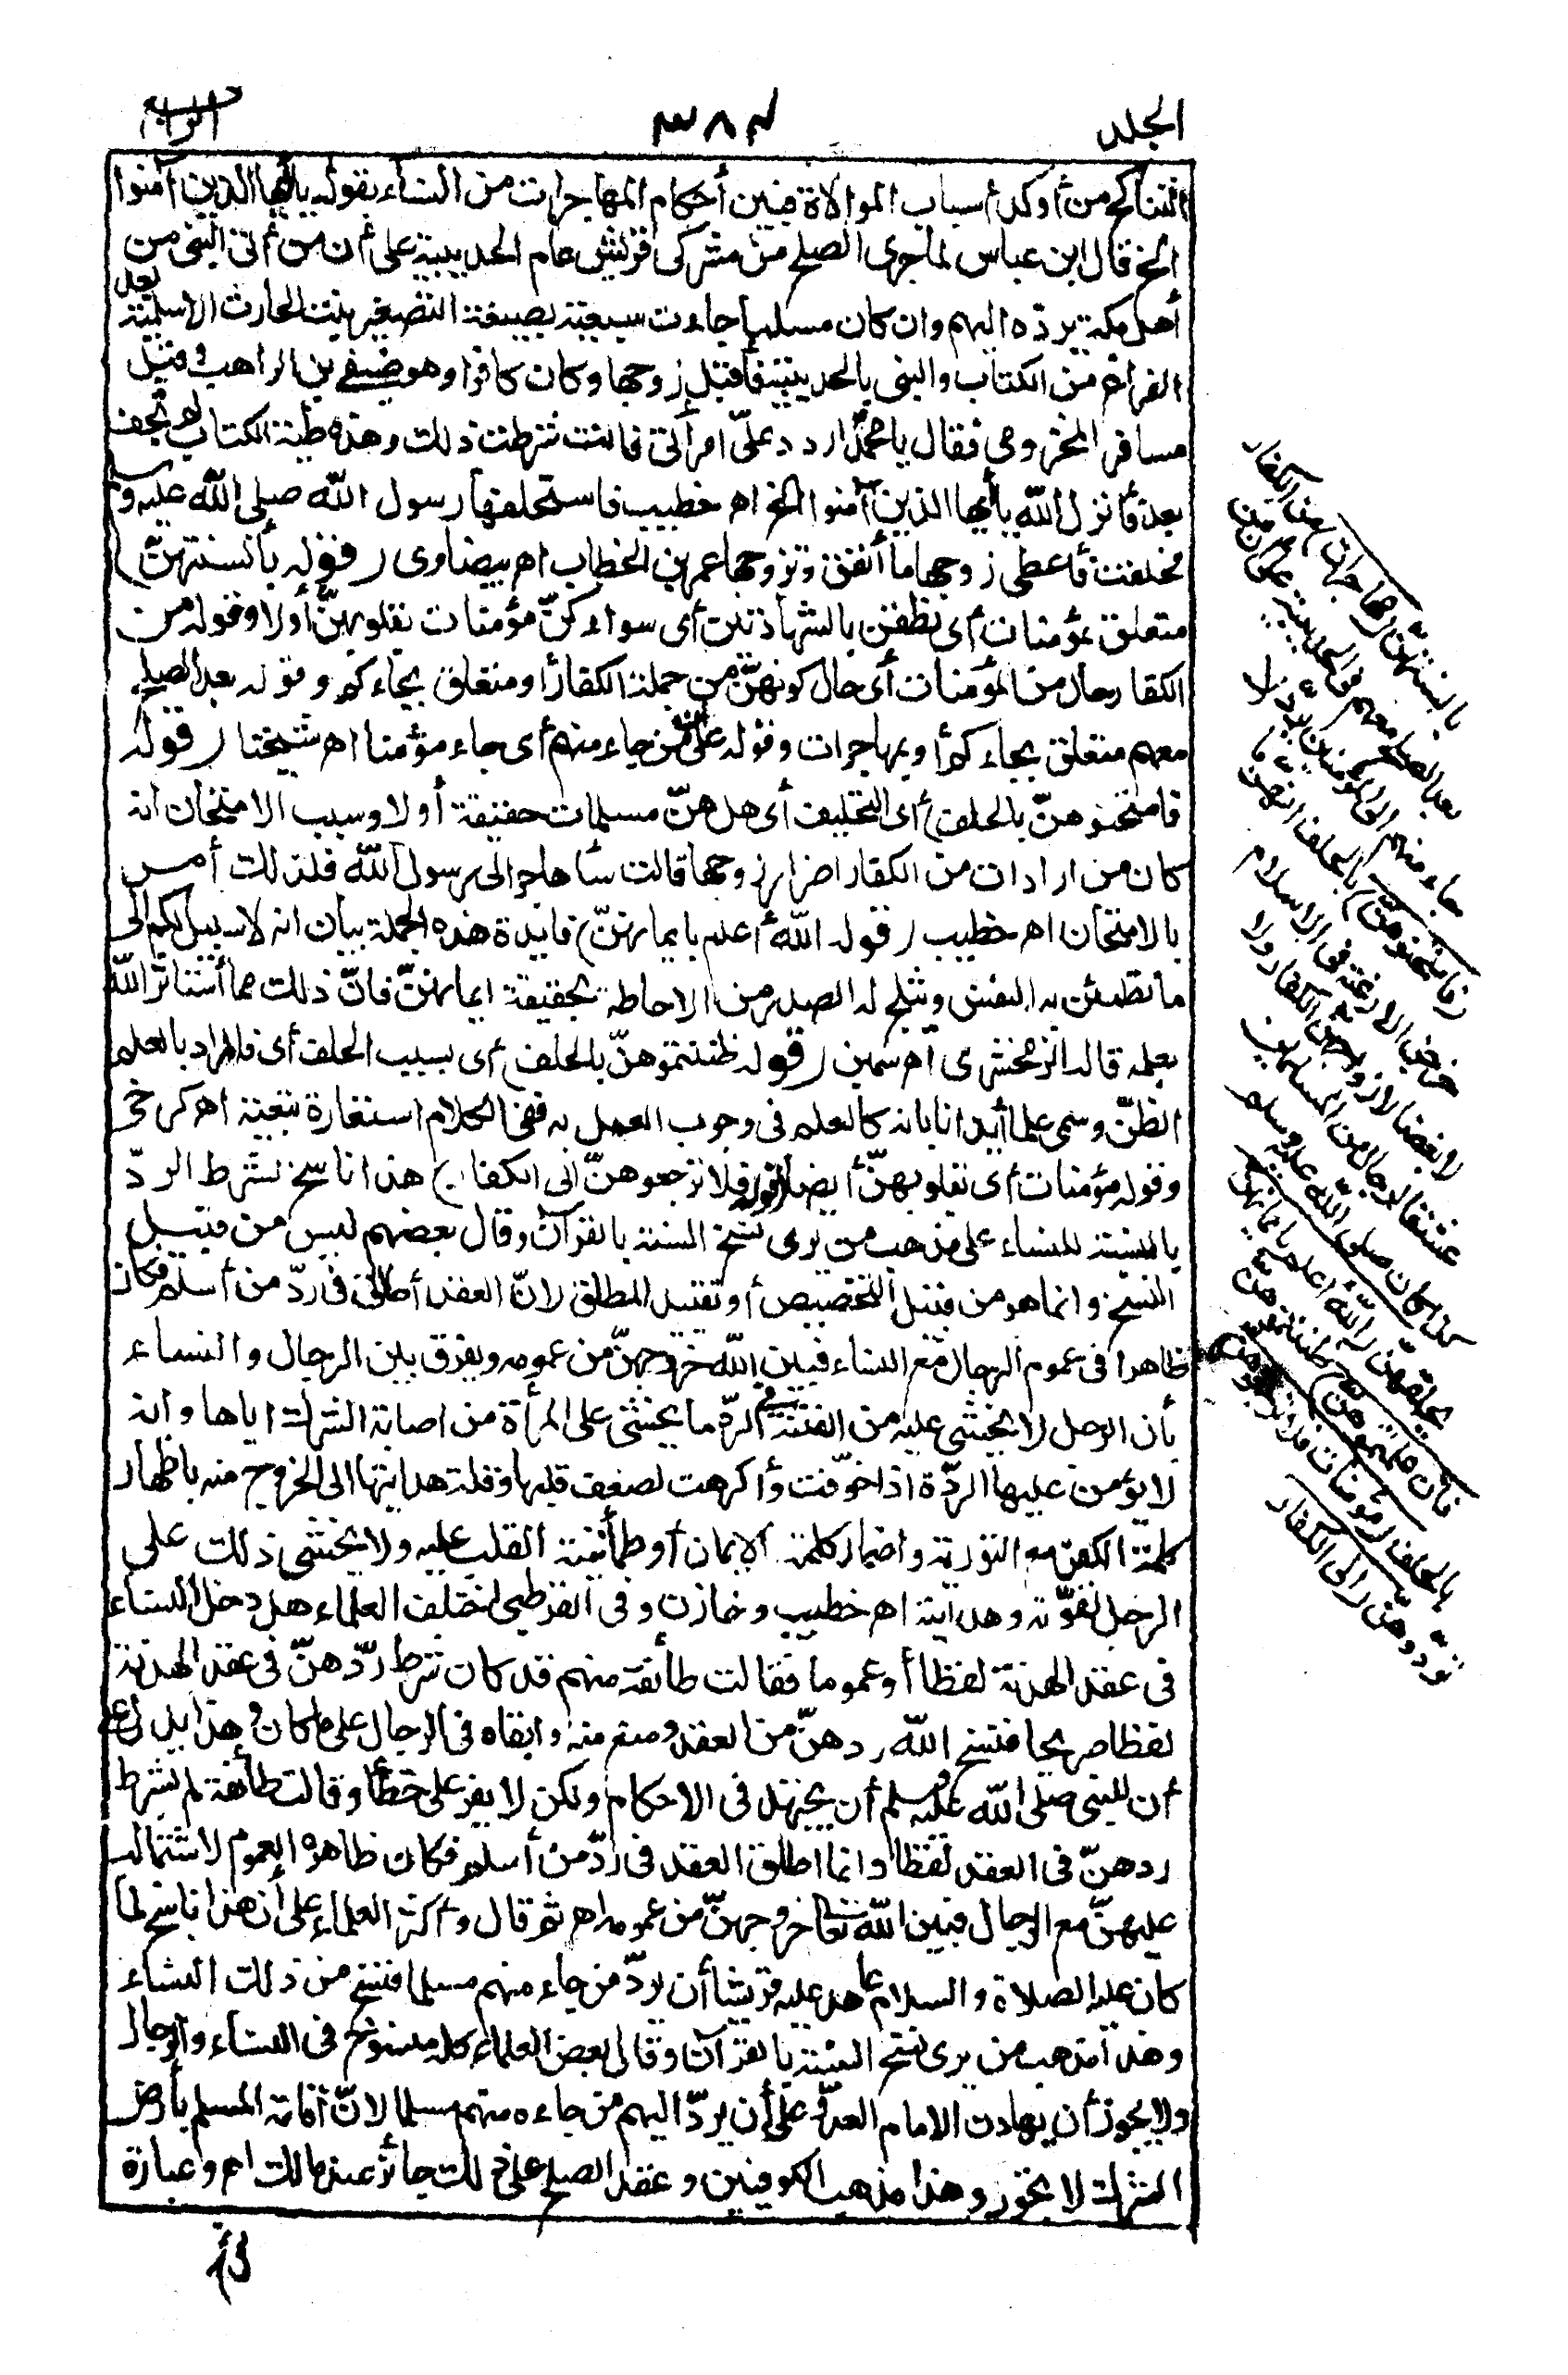 الجلد ٣٨٣ الرابع
التناكح من أوكد أسباب الموالاة فبين أحكام المهاجرات من النساء بقوله يا أيها الذين آمنوا
الخ قال ابن عباس لما جرى الصلح من مشركى قريش عام الحديبية على أن من أتى النبى من
أهل مكة يردّه اليهم وان كان مسلما جاءت سبيعة بصيغة التصغير بنت الحارث الاسلمية بعد
الفراغ من الكتاب والنبى بالحديبية فأقبل زوجها وكان كافرا وهو صيفى بن الراهب وقيل
مسافر المخزومى فقال يا محمّد اردد علىّ امرأتى فانت شرطت ذلك وهذه طية الكتاب لم تجف
بعد فأنزل اللّٰه يا أيها الذين آمنوا الخ اه خطيب فاستحلفها رسول اللّٰه صلى اللّٰه عليه وسلم
فحلفت فأعطى زوجها ما أنفق وتزوجها عمر بن الخطاب اه بيضاوى (قوله بألسنتهنّ)
متعلق بمؤمنات أى نطقن بالشهادتين أى سواء كنّ مؤمنات بقلوبهنّ أولا وقوله من
الكفار حال من المؤمنات أى حال كونهنّ من جملة الكفار أو متعلق بجاءكم وقوله بعد الصلح
معهم متعلق بجاءكم أو بمهاجرات وقوله على أن من جاء منهم أى جاء مؤمنا اه شيخنا (قوله
فامتحنوهنّ بالحلف) أى التحليف أى هل هنّ مسلمات حقيقة أولا وسبب الامتحان انه
كان من ارادت من الكفار اضرار زوجها قالت سأهاجر الى رسول اللّٰه فلذلك أمر
بالامتحان اه خطيب (قوله اللّٰه أعلم بايمانهنّ) فايدة هذه الجملة بيان انه لا سبيل لكم الى
ما تطمئن به النفس ويثلج له الصدر من الاحاطة بحقيقة ايمانهنّ فانّ ذلك مما أستأثر اللّٰه
بعلمه قاله الزمخشرى اه سمين (قوله ظننتموهنّ بالحلف) أى بسبب الحلف أى فالمراد بالعلم
الظنّ وسمى علما أيدانا بانه كالعلم فى وجوب العمل به ففى الكلام استعارة تبعية اه كرخى
وقوله مؤمنات أى بقلوبهنّ أيضا (قوله فلا ترجعوهنّ الى الكفار) هذا ناسخ لشرط الردّ
بالنسبة للنساء على مذهب من يرى نسخ السنة بالقرآن وقال بعضهم ليس من قبيل
النسخ وانما هو من قبيل التخصيص أو تقييد المطلق لانّ العقد أطلق فى ردّ من أسلم فكان
ظاهرا فى عموم الرجال مع النساء فبين اللّٰه خروجهنّ من عمومه ويفرق بين الرجال والنساء
بأن الرجل لا يخشى عليه من الفتنة فى الردّ ما يخشى على المرأة من اصابة المشرك اياها وانه
لا يؤمن عليها الردّة اذا خوّفت وأكرهت لضعف قلبها وقلة هدايتها الى الخروج منه باظهار
كلمة الكفر مع التورية واضمار كلمة الايمان أو طمأنينة القلب عليه ولا يخشى ذلك على
الرجل لقوّته وهدايته اه خطيب وخازن وفى القرطبى اختلف العلماء هل دخل النساء
فى عقد الهدنة لفظا أو عموما فقالت طائفة منهم قد كان شرط ردّهنّ فى عقد الهدنة
لفظا صريحا فنسخ اللّٰه ردهنّ من العقد ومنع منه وابقاه فى الرجال على ما كان وهذا يدل على
أن للنبى صلى اللّٰه عليه وسلم أن يجتهد فى الاحكام ولكن لا يقر على خطأ وقالت طائفة لم يشرط
ردهنّ فى العقد لفظا وانما اطلق العقد فى ردّ من أسلم فكان ظاهره العموم لاشتماله
عليهنّ مع الرجال فبين اللّٰه تعالى خروجهنّ من عمومه اه ثم قال وأكثر العلماء على أن هذا ناسخ لما
كان عليه الصلاة والسلام عاهد عليه قريشا أن يردّ من جاء منهم مسلما فنسخ من ذلك النساء
وهذا مذهب من يرى نسخ السنة بالقرآن وقال بعض العلماء كله منسوخ فى النساء والرجال
ولا يجوز أن يهادن الامام العدوّ على أن يردّ اليهم من جاءه منهم مسلما لانّ اقامة المسلم بأرض
الشرك لا تجوز وهذا مذهب الكوفيين وعقد الصلح على ذلك جائز عند مالك اه وعبارة
بألسنتهنّ (مهاجرات) من الكفار
بعد الصلح معهم فى الحديبية على أن من
جاء منهم الى المؤمنين يردّ لا
(فامتحنوهنّ) بالحلف انهنّ ما
خرجن الا رغبة فى الاسلام
لا بغضا لازواجهنّ الكفار ولا
عشقا لرجال من المسلمين
كذا كان صلى اللّٰه عليه وسلم
يحلفهنّ (اللّٰه أعلم بايمانهنّ
فان علمتموهنّ) ظننتموهنّ
بالحلف (مؤمنات فلا ترجعوهنّ)
تردّوهنّ (الى الكفار